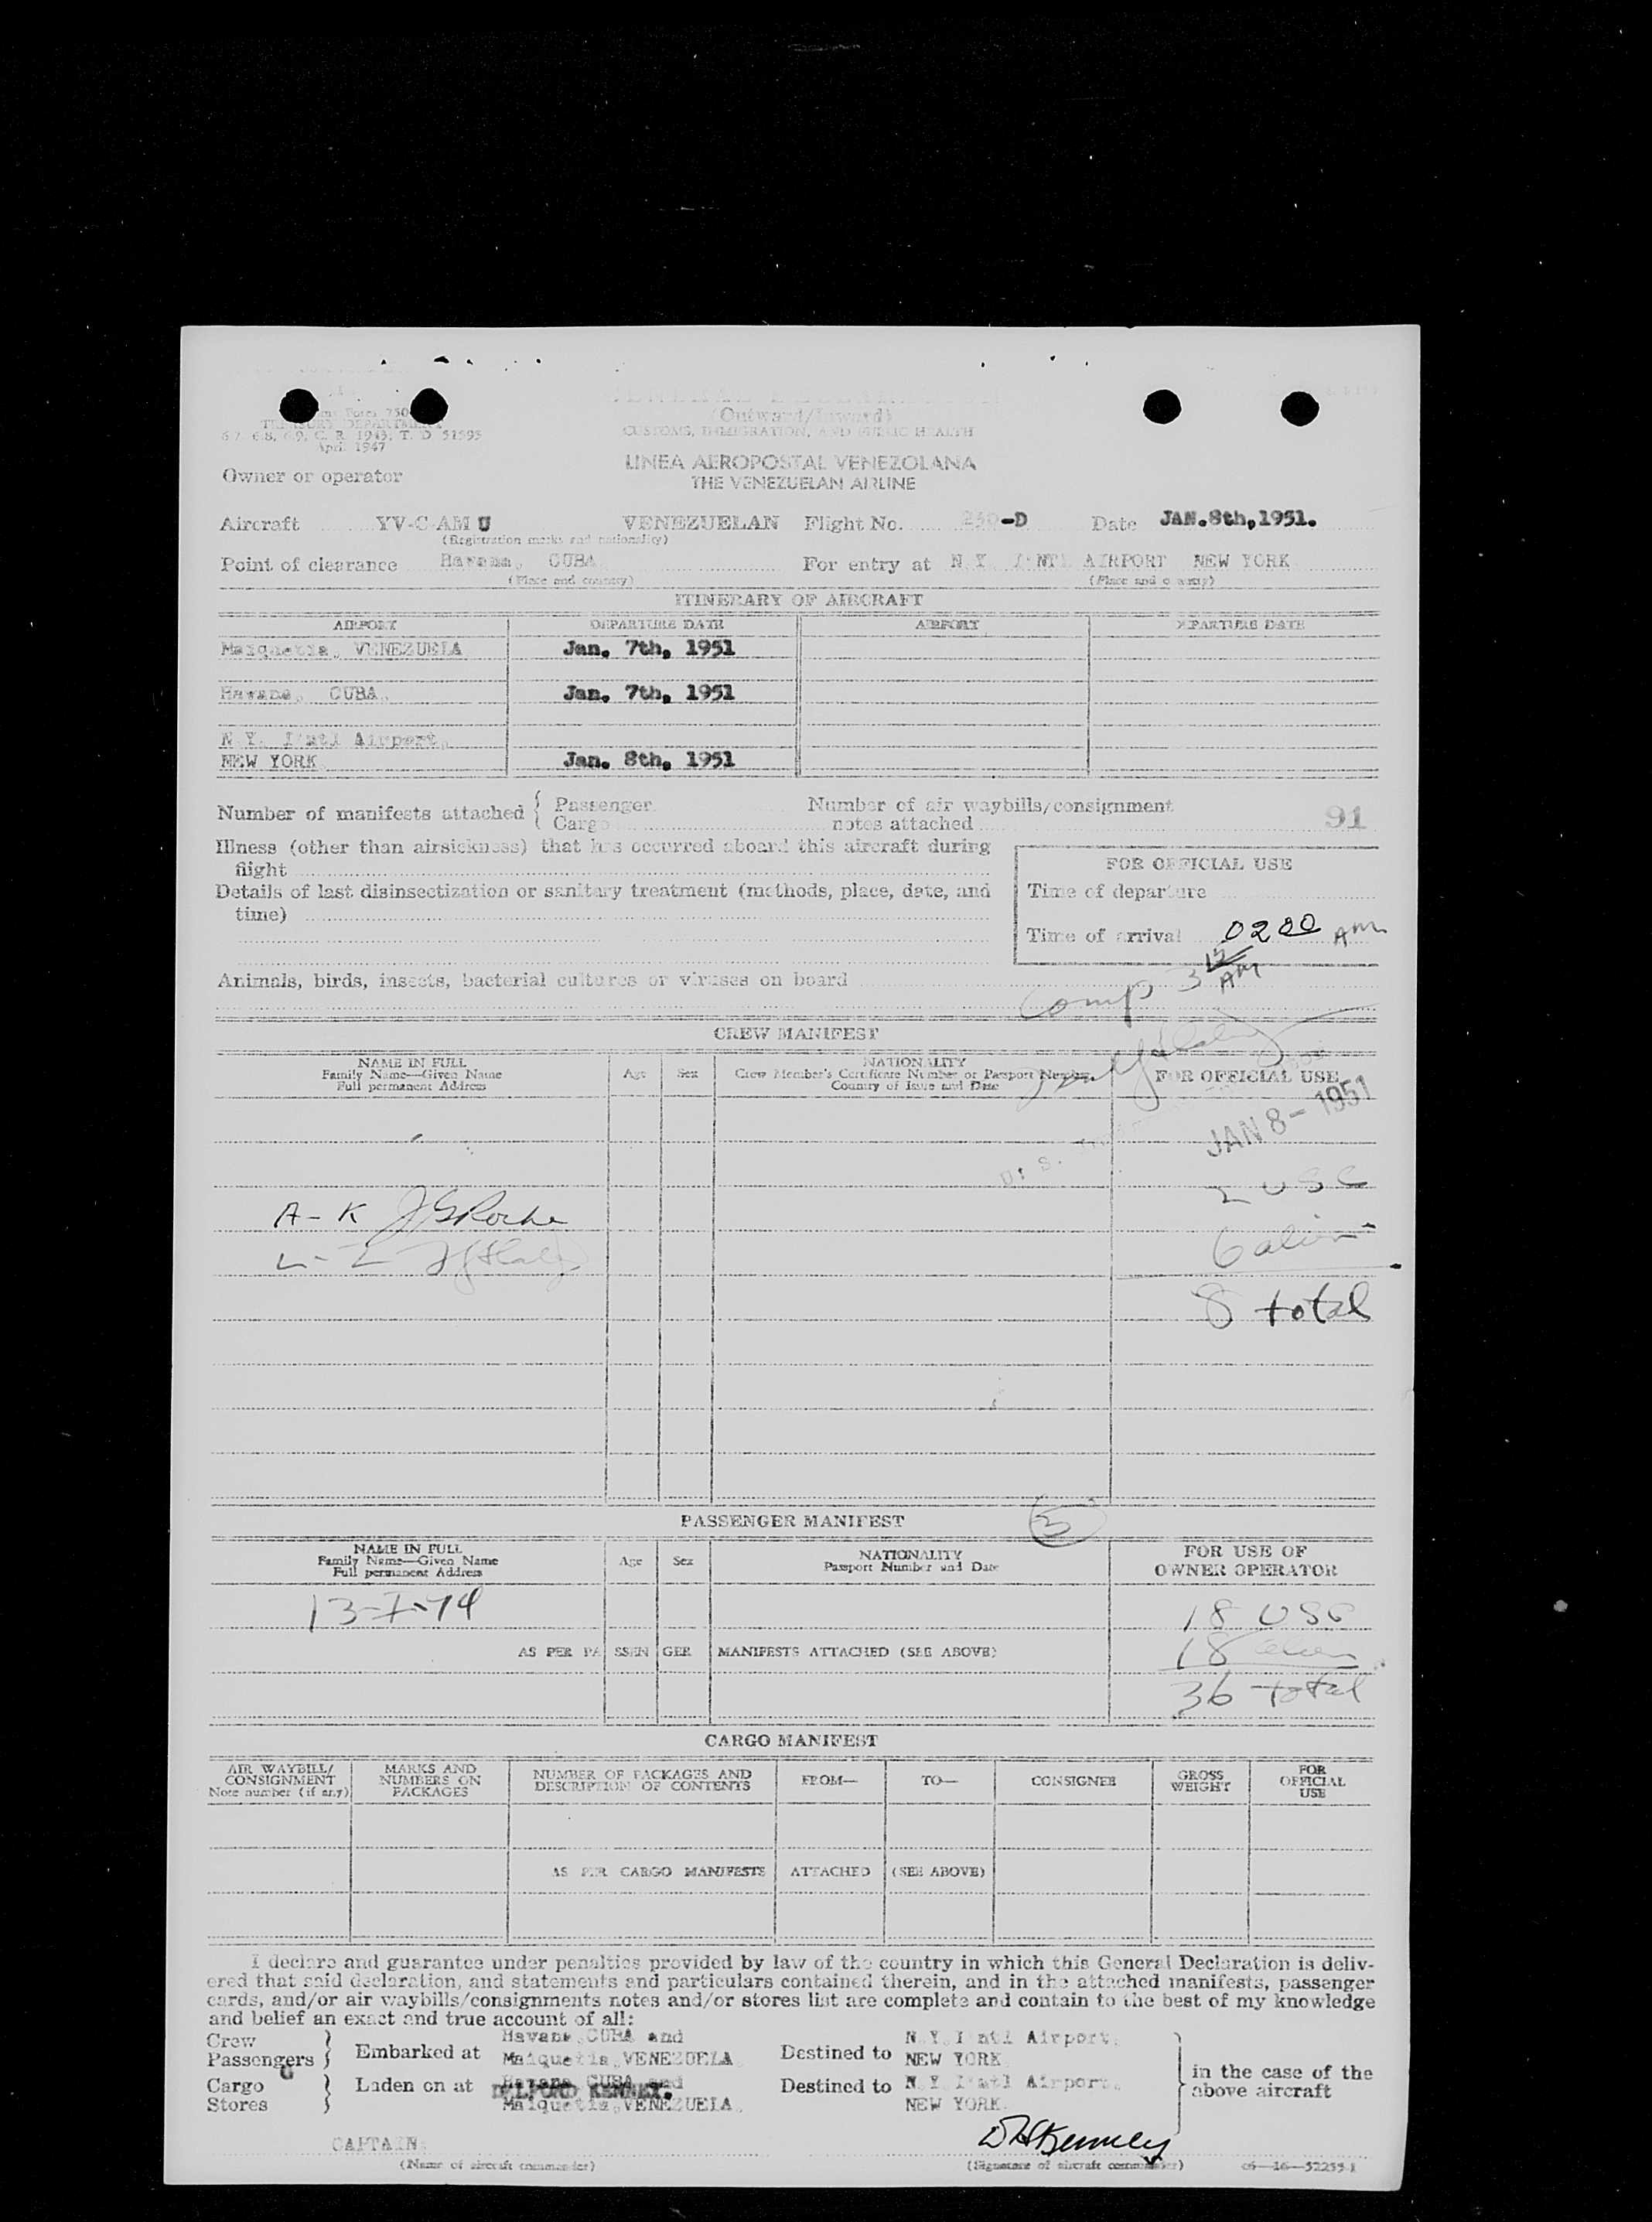 Customs Form 750
TREASURY DEPARTMENT
6.7, 6.8, 6.9, C. R. 1943, T. D. 51595
April 1947
GENERAL DECLARATION
(Outward/Inward)
CUSTOMS, IMMIGRATION, AND PUBLIC HEALTH
LINEA AEROPOSTAL VENEZOLANA
THE VENEZUELAN AIRLINE
Owner or operator
Aircraft YV-C-AM U VENEZUELAN Flight No. 230-D Date JAN.8th,1951.
(Registration marks and nationality)
Point of clearance Havana, CUBA For entry at N.Y. I'NTL AIRPORT NEW YORK
(Place and country) (Place and country)
ITINERARY OF AIRCRAFT
AIRPORT DEPARTURE DATE AIRPORT DEPARTURE DATE
Maiquetia, VENEZUELA Jan. 7th, 1951
Havana, CUBA, Jan. 7th, 1951
N.Y. I'ntl Airport,
NEW YORK Jan. 8th, 1951
Number of manifests attached { Passenger
Cargo
Number of air waybills/consignment
notes attached
91
Illness (other than airsickness) that has occurred aboard this aircraft during
flight
Details of last disinsectization or sanitary treatment (methods, place, date, and
time)
FOR OFFICIAL USE
Time of departure
Time of arrival 0200 AM
Animals, birds, insects, bacterial cultures or viruses on board
Comp 3 15 AM
CREW MANIFEST
NAME IN FULL
Family Name—Given Name
Full permanent Address
Age Sex
NATIONALITY
Crew Member's Certificate Number or Passport Number
Country of Issue and Date
FOR OFFICIAL USE
JAN 8 - 1951
U. S.
2 USC
A-K JGRoche
6 alien
L-Z
8 total
PASSENGER MANIFEST
5
NAME IN FULL
Family Name—Given Name
Full permanent Address
Age Sex
NATIONALITY
Passport Number and Date
FOR USE OF
OWNER OPERATOR
13-7-74 18 USC
AS PER PASSENGER MANIFESTS ATTACHED (SEE ABOVE) 18 alien
36 total
CARGO MANIFEST
AIR WAYBILL/
CONSIGNMENT
Note number (if any)
MARKS AND
NUMBERS ON
PACKAGES
NUMBER OF PACKAGES AND
DESCRIPTION OF CONTENTS
FROM— TO— CONSIGNEE
GROSS
WEIGHT
FOR
OFFICIAL
USE
AS PER CARGO MANIFESTS ATTACHED (SEE ABOVE)
I declare and guarantee under penalties provided by law of the country in which this General Declaration is deliv-
ered that said declaration, and statements and particulars contained therein, and in the attached manifests, passenger
cards, and/or air waybills/consignments notes and/or stores list are complete and contain to the best of my knowledge
and belief an exact and true account of all:
Crew
Passengers } Embarked at Havana, CUBA and
Maiquetia, VENEZUELA
Destined to N.Y. I'ntl Airport,
NEW YORK
Cargo
Stores } Laden on at Havana CUBA and
Maiquetia, VENEZUELA,
Destined to N.Y. I'ntl Airport,
NEW YORK.
} in the case of the
above aircraft
CAPTAIN:
(Name of aircraft commander) (Signature of aircraft commander) c6—16—52255-1